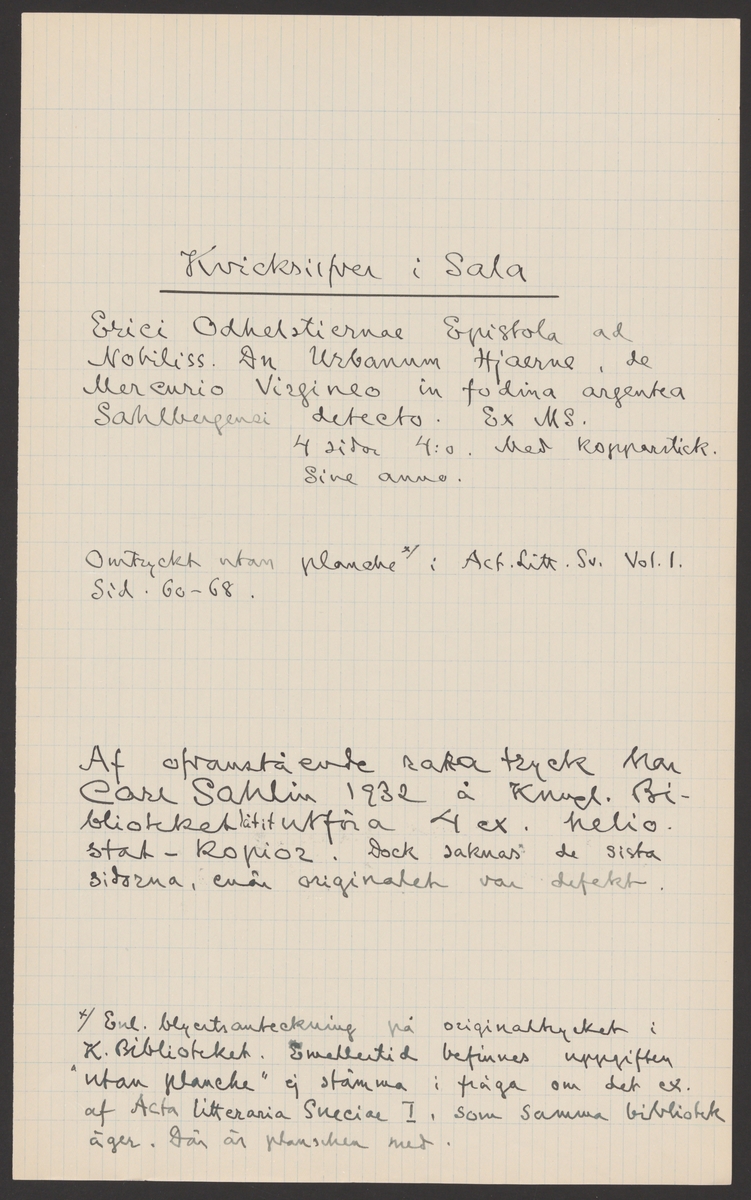 Kvicksilfver i Sala
Erici Odhelstiernae Epistola ad
Nobiliss. Dn Urbanum Hjaerne, de
Mercurio Virgineo in fodina argentea
Sahlbergensi detecto. Ex MS.
4 sidor 4:o. Med kopparstick.
Sine anno.
Omtryckt utan planche x/ i Act. Litt. Sv. Vol. 1.
Sid. 60-68.
Af ofvanstående rara tryck har
Carl Sahlin 1932 å Kungl. Bi-
blioteket låtit utföra 4 ex. helio-
stat-kopior. Dock saknas de sista
sidorna, enär originalet var defekt.
x/ Enl. blyertsanteckning på originaltrycket i
K. Biblioteket. Emellertid befinnes uppgiften
"utan planche" ej stämma i fråga om det ex.
af Acta litteraria Sueciae I, som samma bibliotek
äger. Där är planschen med.